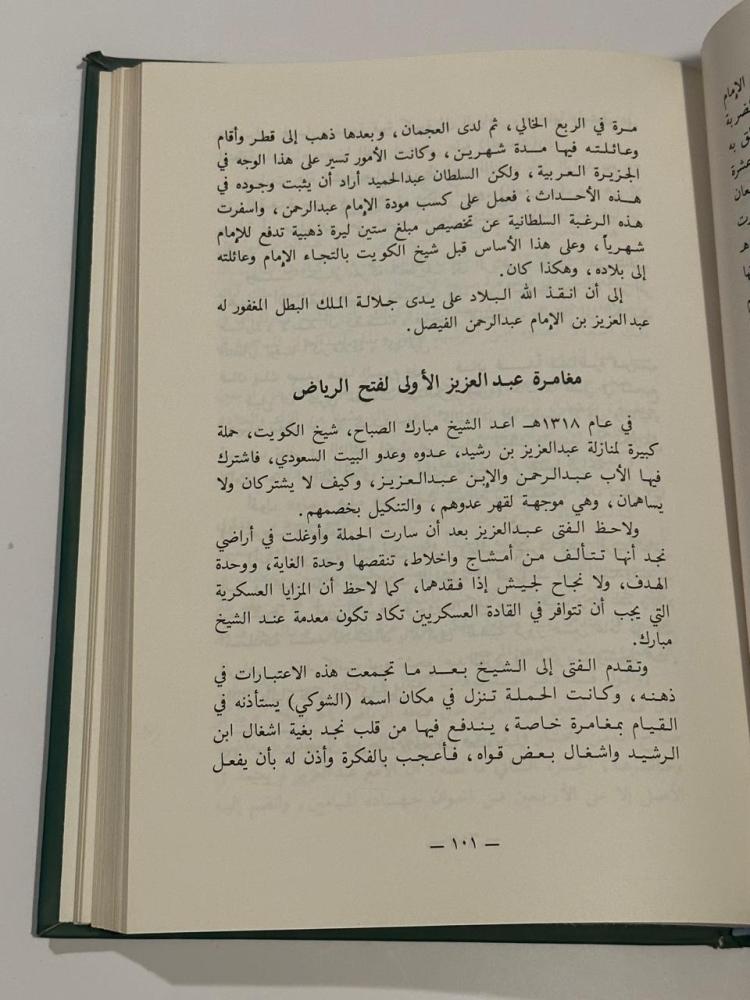 مرة في الربع الخالي، ثم لدى العجمان، وبعدها ذهب إلى قطر وأقام
وعائلته فيها مدة شهرين، وكانت الأمور تسير على هذا الوجه في
الجزيرة العربية، ولكن السلطان عبدالحميد أراد أن يثبت وجوده في
هذه الأحداث، فعمل على كسب مودة الإمام عبدالرحمن، واسفرت
هذه الرغبة السلطانية عن تخصيص مبلغ ستين ليرة ذهبية تدفع للإمام
شهرياً، وعلى هذا الأساس قبل شيخ الكويت بالتجاء الإمام وعائلته
إلى بلاده، وهكذا كان.
إلى أن انقذ الله البلاد على يدى جلالة الملك البطل المغفور له
عبدالعزيز بن الإمام عبدالرحمن الفيصل.
مغامرة عبد العزيز الأولى لفتح الرياض
في عام ١٣١٨هـ اعد الشيخ مبارك الصباح، شيخ الكويت، حملة
كبيرة لمنازلة عبدالعزيز بن رشيد، عدوه وعدو البيت السعودي، فاشترك
فيها الأب عبدالرحمن والإبن عبدالعزيز، وكيف لا يشتركان ولا
يساهمان، وهي موجهة لقهر عدوهم، والتنكيل بخصمهم.
ولاحظ الفتى عبدالعزيز بعد أن سارت الحملة وأوغلت في أراضي
نجد أنها تتألف من أمشاج واخلاط، تنقصها وحدة الغاية، ووحدة
الهدف، ولا نجاح لجيش إذا فقدهما، كما لاحظ أن المزايا العسكرية
التي يجب أن تتوافر في القادة العسكريين تكاد تكون معدمة عند الشيخ
مبارك.
وتقدم الفتى إلى الشيخ بعد ما تجمعت هذه الاعتبارات في
ذهنه، وكانت الحملة تنزل في مكان اسمه (الشوكي) يستأذنه في
القيام بمغامرة خاصة، يندفع فيها من قلب نجد بغية اشغال ابن
الرشيد واشغال بعض قواه، فأعجب بالفكرة وأذن له بأن يفعل
— ١٠١ —
الإمام
به
عشرة